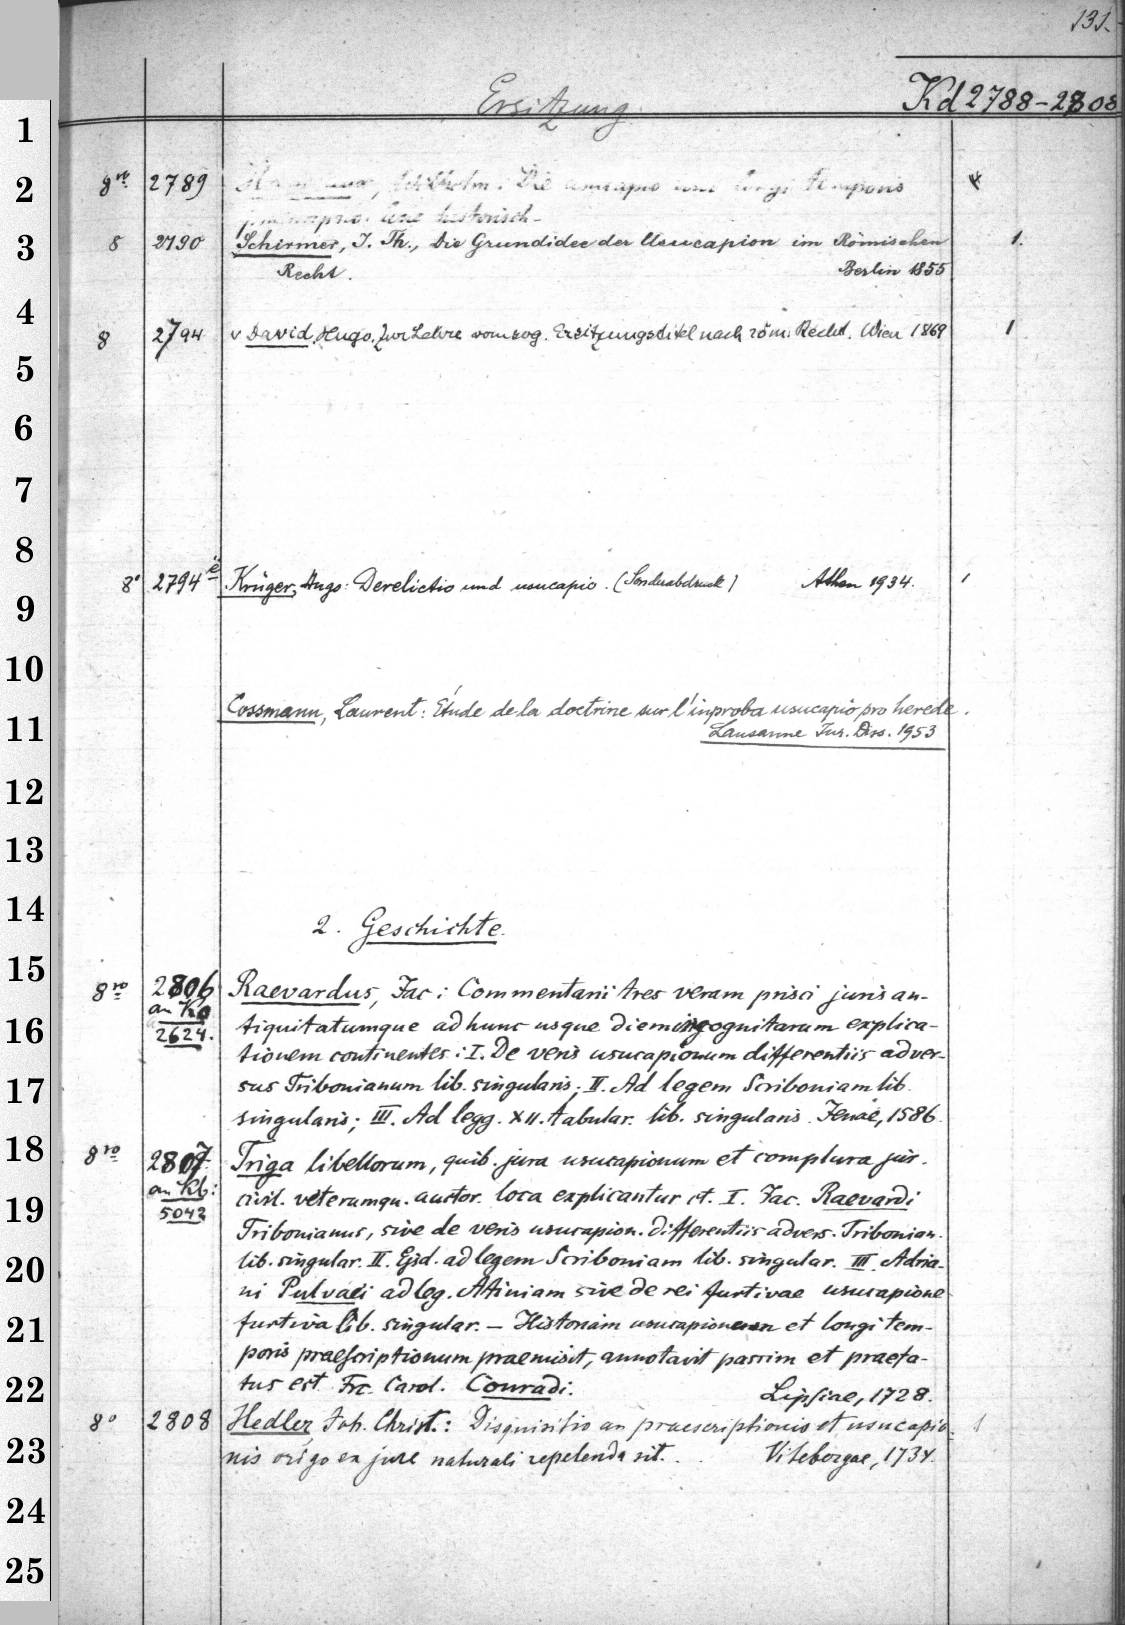 131.
Ersitzung
Kd 2788-2808
1
2
3
4
5
6
7
8
9
10
11
12
13
14
15
16
17
18
19
20
21
22
23
24
25
8vo 2789 : Die usucapio und longi temporis
historisch-
8 2790 Schirmer, J. Th., Die Grundidee der Usucapion im Römischen 1.
Recht. Berlin 1855
8 2794 v David, Hugo. Zur Lehre vom sog. Ersitzungstitel nach röm. Recht. Wien 1869 1
8° 2794 e Krüger, Hugo: Derelictio und usucapio. (Sonderabdruck) Athen 1934. 1
Cossmann, Laurent: Étude de la doctrine sur l'inproba usucapio pro herede.
Lausanne Jur. Diss. 1953
2. Geschichte.
8vo 2806 Raevardus, Jac: Commentarii tres veram prisci juris an-
an Kg
tiquitatumque adhunc usque diem incognitarum explica-
2624.
tionem continentes: I. De veris usucapionum differentiis adver-
sus Tribonianum lib. singularis; II. Ad legem Scriboniam lib.
singularis; III. Ad legg. XII. tabular. lib. singularis. Jenae, 1586.
8vo 2807. Triga libellorum, quib. jura usucapionum et complura jur.
an Kb:
civil. veterumqu. auctor. loca explicantur ct. I. Jac. Raevardi
5042
Tribonianus, sive de veris usucapion. differentiis advers. Tribonian.
lib. singular. II. Ejsd. ad legem Scriboniam lib. singular. III. Adria-
ni Pulvaei ad leg. Atiniam sive de rei furtivae usucapione
furtiva lib. singular. – Historiam usucapionum et longi tem-
poris praescriptionum praemisit, annotavit passim et praefa-
tus est Frc. Carol. Conradi. Lipsiae, 1728.
8° 2808 Hedler Joh. Christ.: Disquisitio an praescriptionis et usucapio- 1
nis origo ex jure naturali repetenda sit. Vitebergae, 1734.